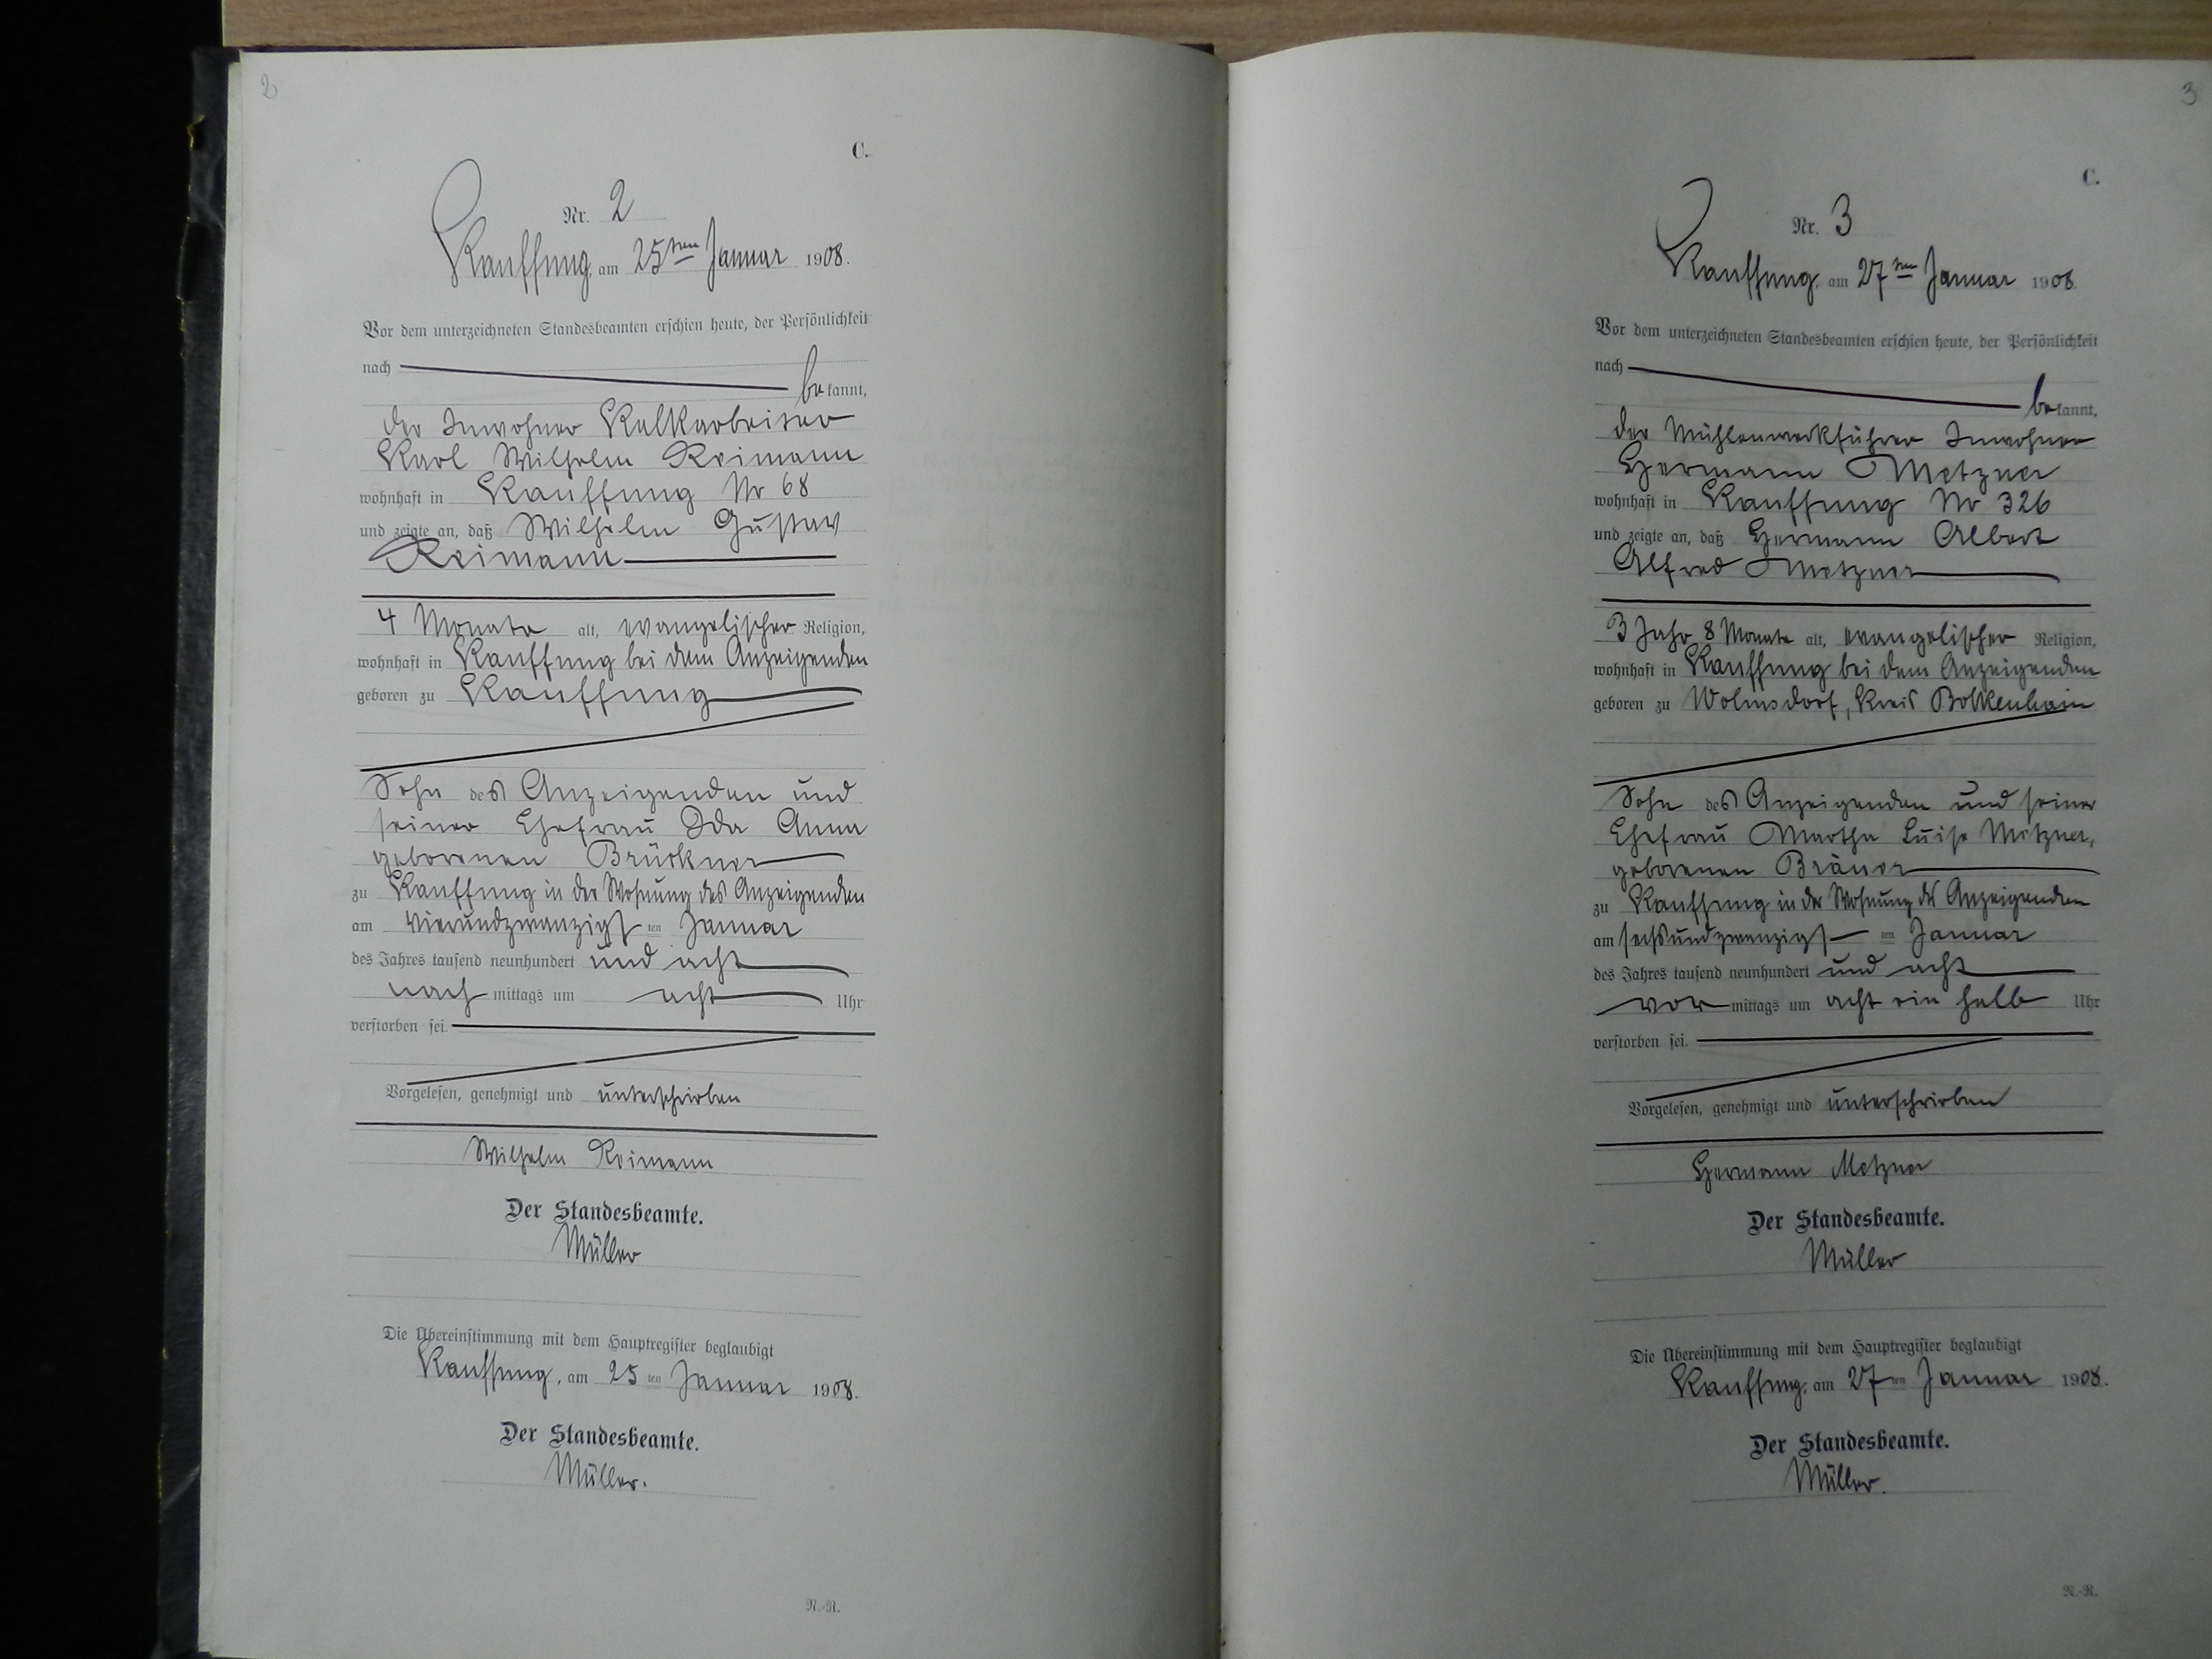 2
C.
Nr. 2
Kauffung, am 25ten Januar 1908.
Vor dem unterzeichneten Standesbeamten erschien heute, der Persönlichkeit
nach
be kannt,
der Inwohner Kalkarbeiter
Karl Wilhelm Reimann
wohnhaft in Kauffung No 68
und zeigte an, daß Wilhelm Gustav
Reimann
4 Monate alt, evangelischer Religion,
wohnhaft in Kauffung bei dem Anzeigenden
geboren zu Kauffung
Sohn des Anzeigenden und
seiner Ehefrau Ida Anna
geborenen Brückner
zu Kauffung in der Wohnung des Anzeigenden
am vierundzwanzigsten Januar
des Jahres tausend neunhundert und acht
nach mittags um acht Uhr
verstorben sei.
Vorgelesen, genehmigt und unterschrieben
Wilhelm Reimann
Der Standesbeamte.
Müller
Die Übereinstimmung mit dem Hauptregister beglaubigt
Kauffung, am 25 ten Januar 1908.
Der Standesbeamte.
Müller.
N.-R.
3
C.
Nr. 3
Kauffung, am 27ten Januar 1908.
Vor dem unterzeichneten Standesbeamten erschien heute, der Persönlichkeit
nach
be kannt,
der Mühlenwerkführer Inwohner
Hermann Metzner
wohnhaft in Kauffung No 326
und zeigte an, daß Hermann Albert
Alfred Metzner
3 Jahr 8 Monate alt, evangelischer Religion,
wohnhaft in Kauffung bei dem Anzeigenden
geboren zu Wolmsdorf, Kreis Bolkenhain
Sohn des Anzeigenden und seiner
Ehefrau Martha Luise Metzner,
geborenen Bräuer
zu Kauffung in der Wohnung des Anzeigenden
am sechsundzwanzigsten Januar
des Jahres tausend neunhundert und acht
vor mittags um acht ein halb Uhr
verstorben sei.
Vorgelesen, genehmigt und unterschrieben
Hermann Metzner
Der Standesbeamte.
Müller
Die Übereinstimmung mit dem Hauptregister beglaubigt
Kauffung, am 27 ten Januar 1908.
Der Standesbeamte.
Müller.
N.-R.